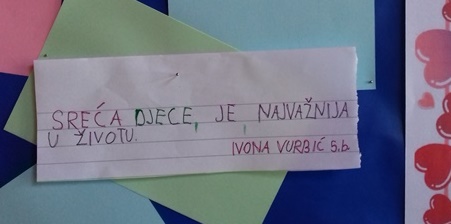 SREĆA DJECE, JE NAJVAŽNIJA
U ŽIVOTU.
IVONA VURBIĆ 5.b